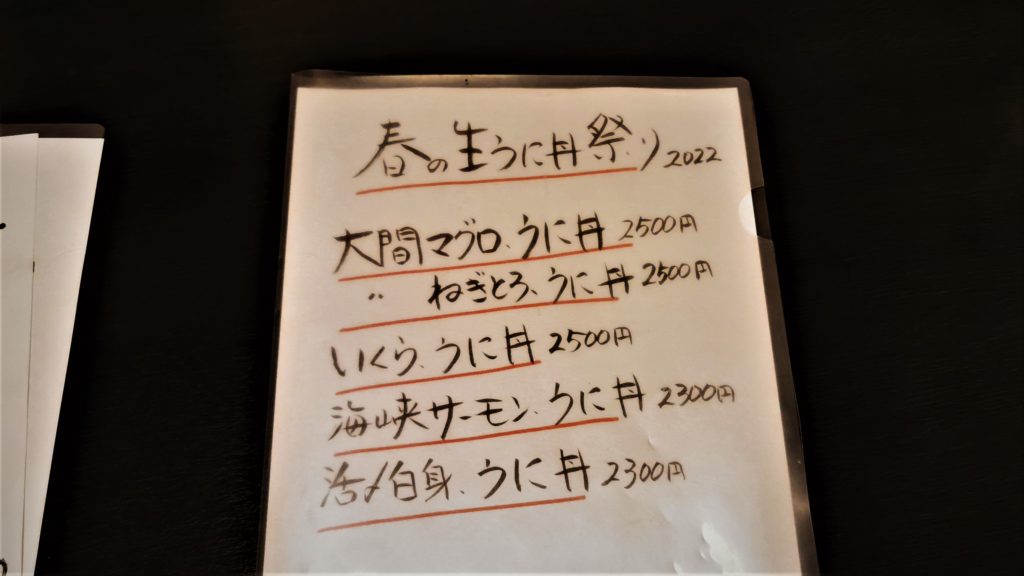 春の生うに丼祭り2022
大間マグロ、うに丼 2500円
〃 ねぎとろ、うに丼 2500円
いくら、うに丼 2500円
海峡サーモン、うに丼 2300円
活〆白身、うに丼 2300円